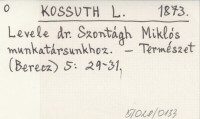 O KOSSUTH L. 1873.
Levele dr. Szontágh Miklós
munkatársunkhoz. – Természet
(Berecz) 5: 29-31,